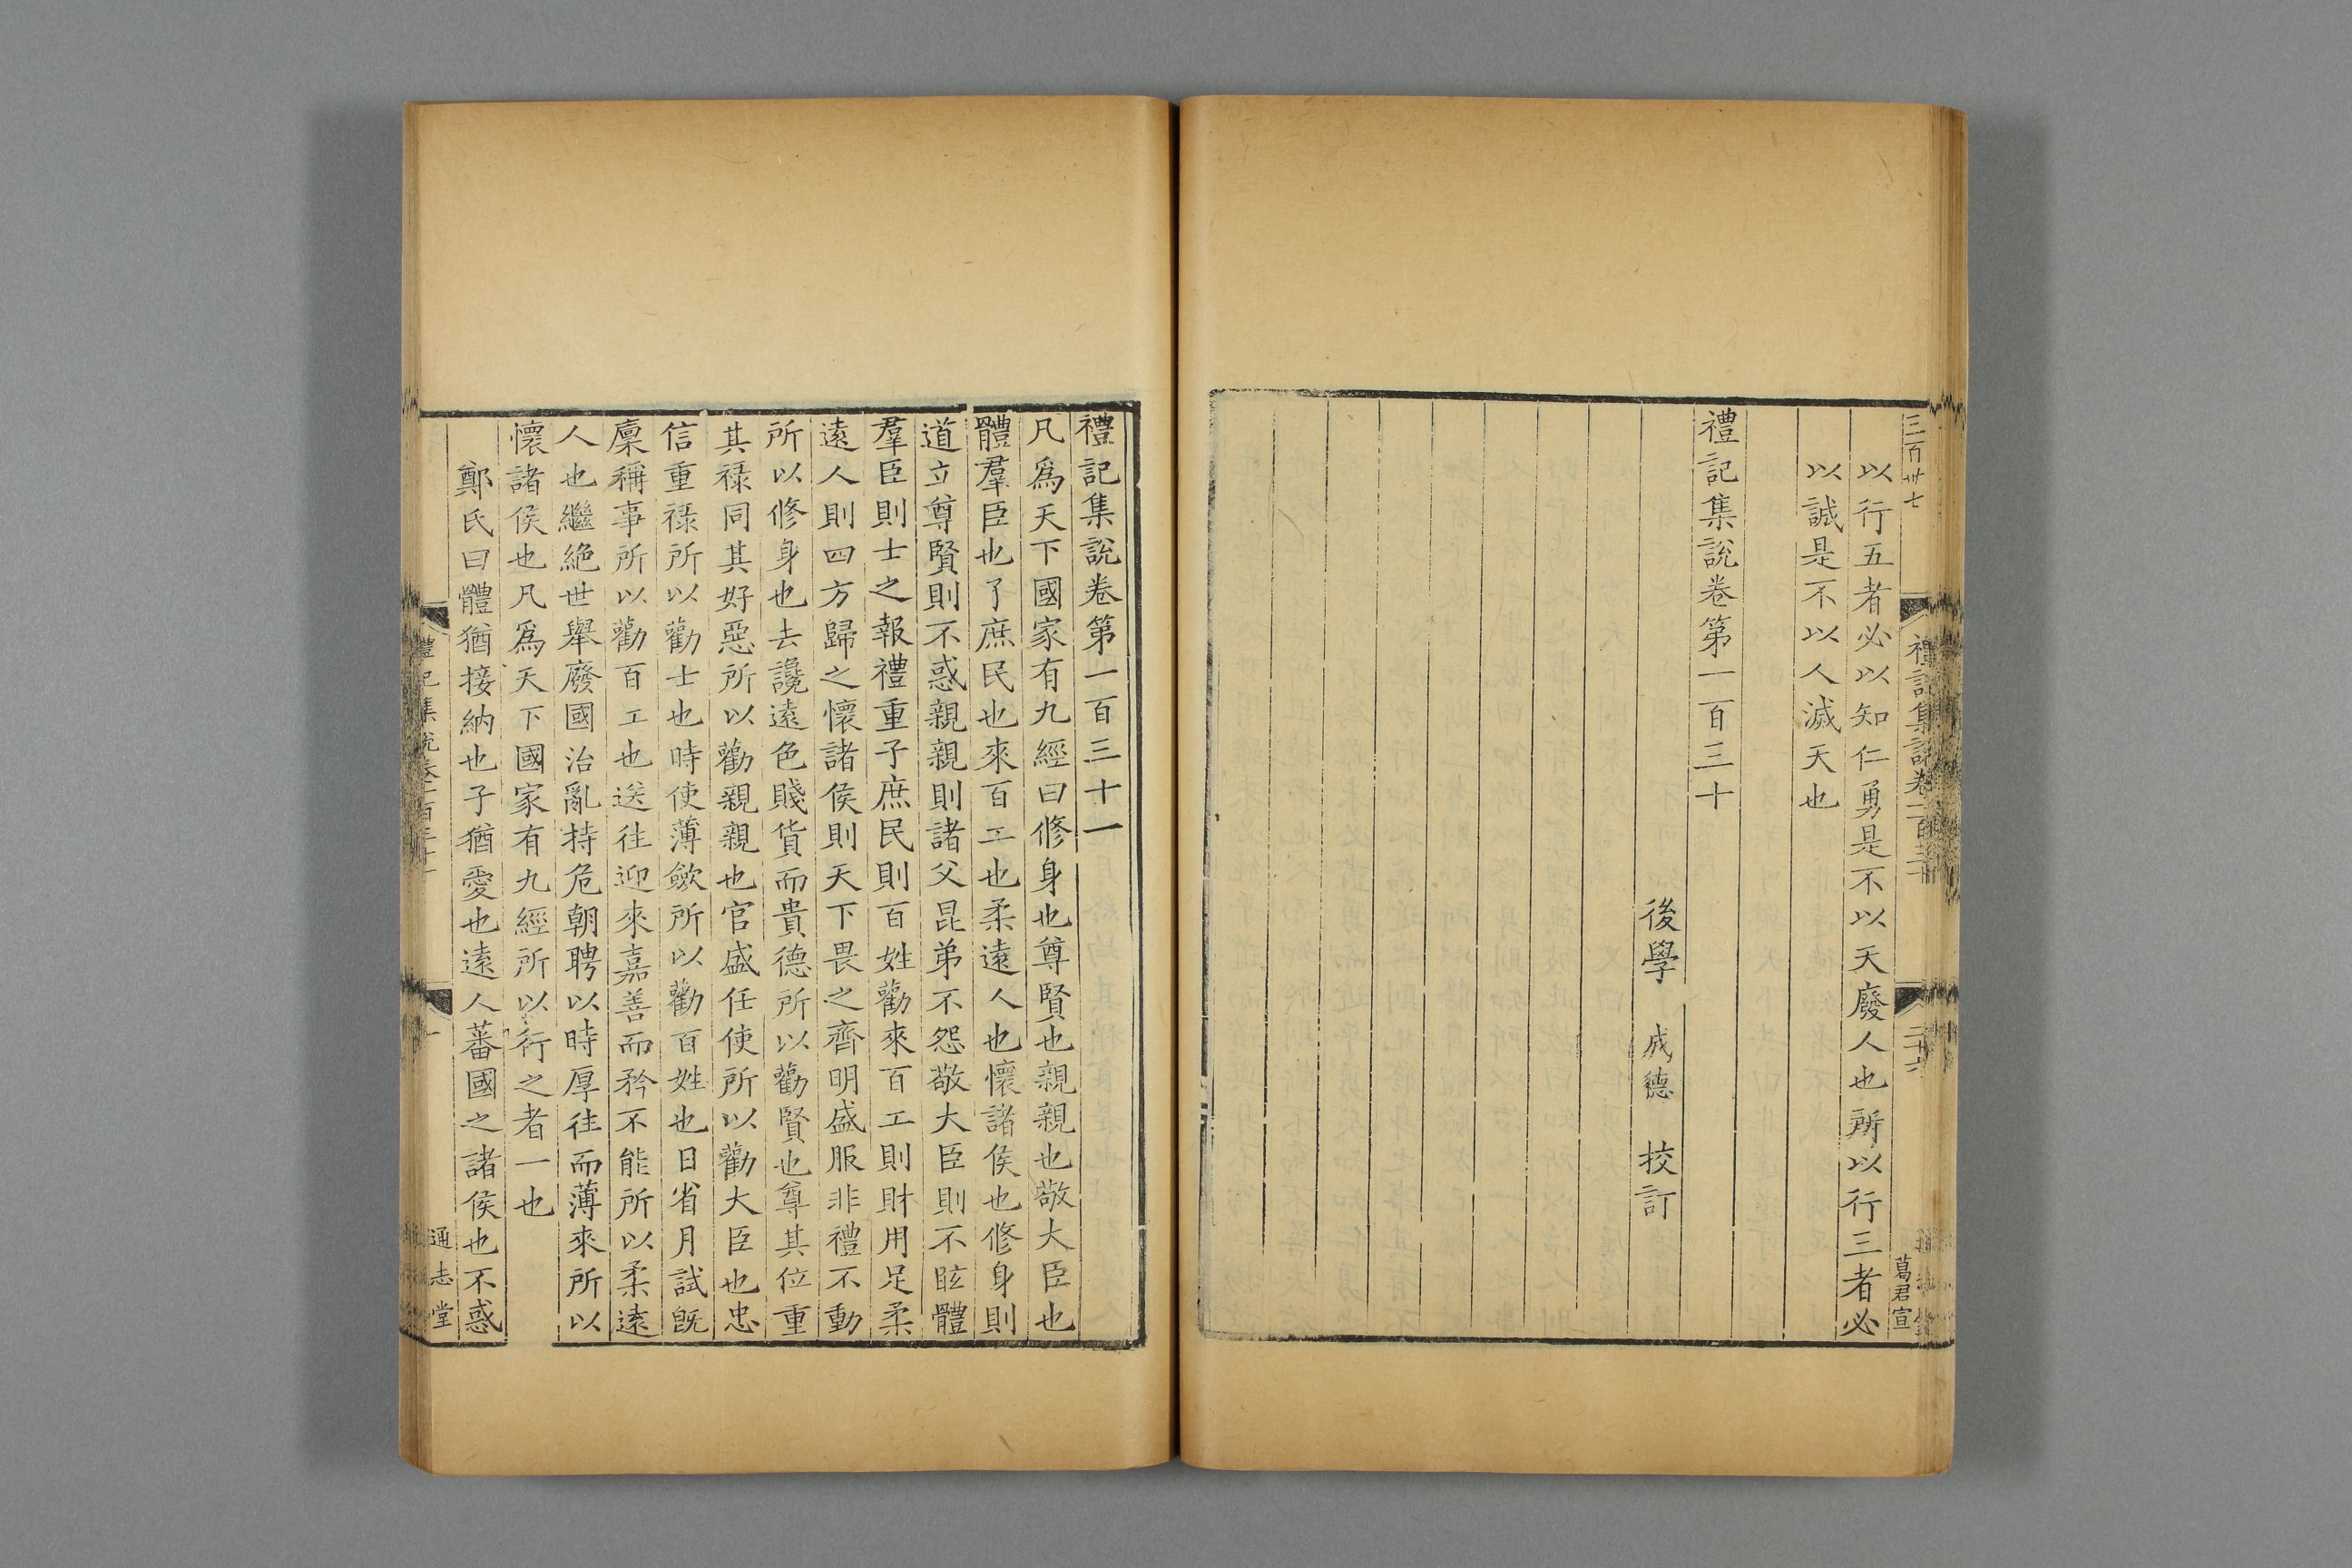 三百卅七
禮記集說卷一百三十
二十六
葛君宣
以行五者必以知仁勇是不以天廢人也所以行三者必
以誠是不以人滅天也
禮記集說卷第一百三十
後學 成德 校訂
禮記集說卷第一百三十一
凡爲天下國家有九經曰修身也尊賢也親親也敬大臣也
體羣臣也子庶民也來百工也柔遠人也懷諸侯也修身則
道立尊賢則不惑親親則諸父昆弟不怨敬大臣則不眩體
羣臣則士之報禮重子庶民則百姓勸來百工則財用足柔
遠人則四方歸之懷諸侯則天下畏之齊明盛服非禮不動
所以修身也去讒遠色賤貨而貴德所以勸賢也尊其位重
其祿同其好惡所以勸親親也官盛任使所以勸大臣也忠
信重祿所以勸士也時使薄斂所以勸百姓也日省月試旣
廩稱事所以勸百工也送往迎來嘉善而矜不能所以柔遠
人也繼絶世舉廢國治亂持危朝聘以時厚往而薄來所以
懷諸侯也凡爲天下國家有九經所以行之者一也
鄭氏曰體猶接納也子猶愛也遠人蕃國之諸侯也不惑
禮記集說卷一百三十一
一
通志堂